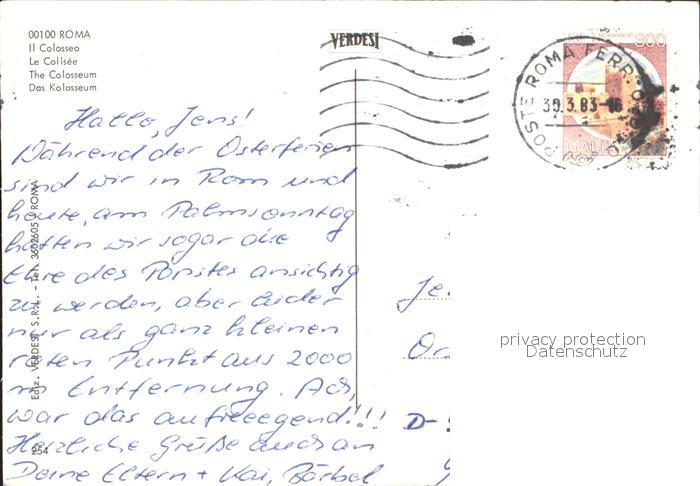 00100 ROMA
Il Colosseo
Le Colisée
The Colosseum
Das Kolosseum
VERDESI
900
POSTE ROMA FERR.
30.3.83-16
Hallo, Jens!
Während der Osterferien
sind wir in Rom und
heute, am Palmsonntag
hatten wir sogar die
Ehre des Papstes ansichtig
zu werden, aber leider
nur als ganz kleinen
roten Punkt aus 2000
m Entfernung. Ach,
war das aufregend!!!
Herzliche Grüße auch an
Deine Eltern + Kai, Bärbel
Ediz. VERDESI S.R.L. - Tel. 3602605 - ROMA
254
Je
Or
D-
privacy protection
Datenschutz